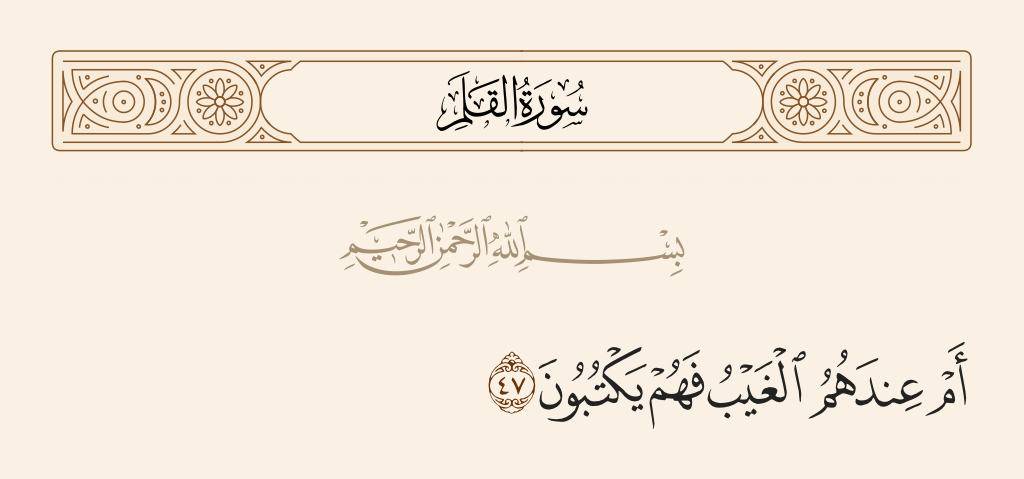 سُورَةُ القَلَمِ
بِسْمِ ٱللَّهِ ٱلرَّحْمَٰنِ ٱلرَّحِيمِ
أَمْ عِندَهُمُ ٱلْغَيْبُ فَهُمْ يَكْتُبُونَ ٤٧